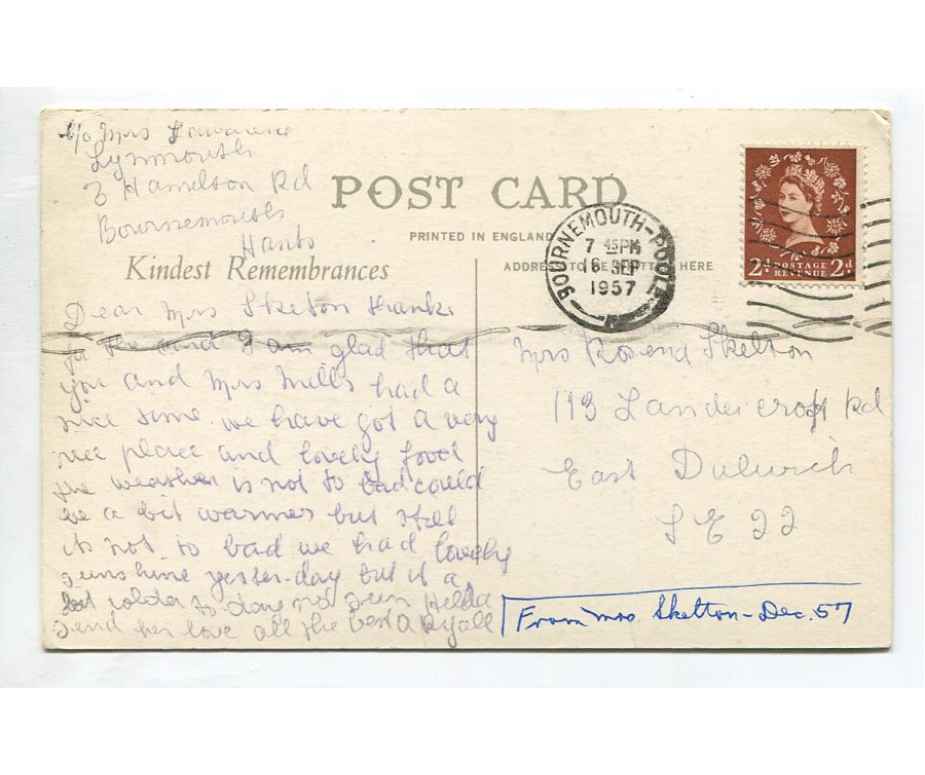 c/o Mrs
Lynmouth
3 Hamelton Rd
Bournemouth
Hants
POST CARD
PRINTED IN ENGLAND
Kindest Remembrances
ADDRESS TO BE HERE
BOURNEMOUTH-POOLE
7 45 PM
16 SEP
1957
2D POSTAGE REVENUE 2D
Dear Mrs Skelton thanks
for the card I am glad that
you and Mrs Mills had a
nice time we have got a very
nice place and lovely food
the weather is not to bad could
be a bit warmer but still
its not to bad we had lovely
sunshine yester-day but it a
colder to-day no sun Hilda
send her love all the best A Ryall
Mrs Rosena Skelton
113 Landercroft Rd
East Dulwich
SE 22
From Mrs Skelton - Dec. 57